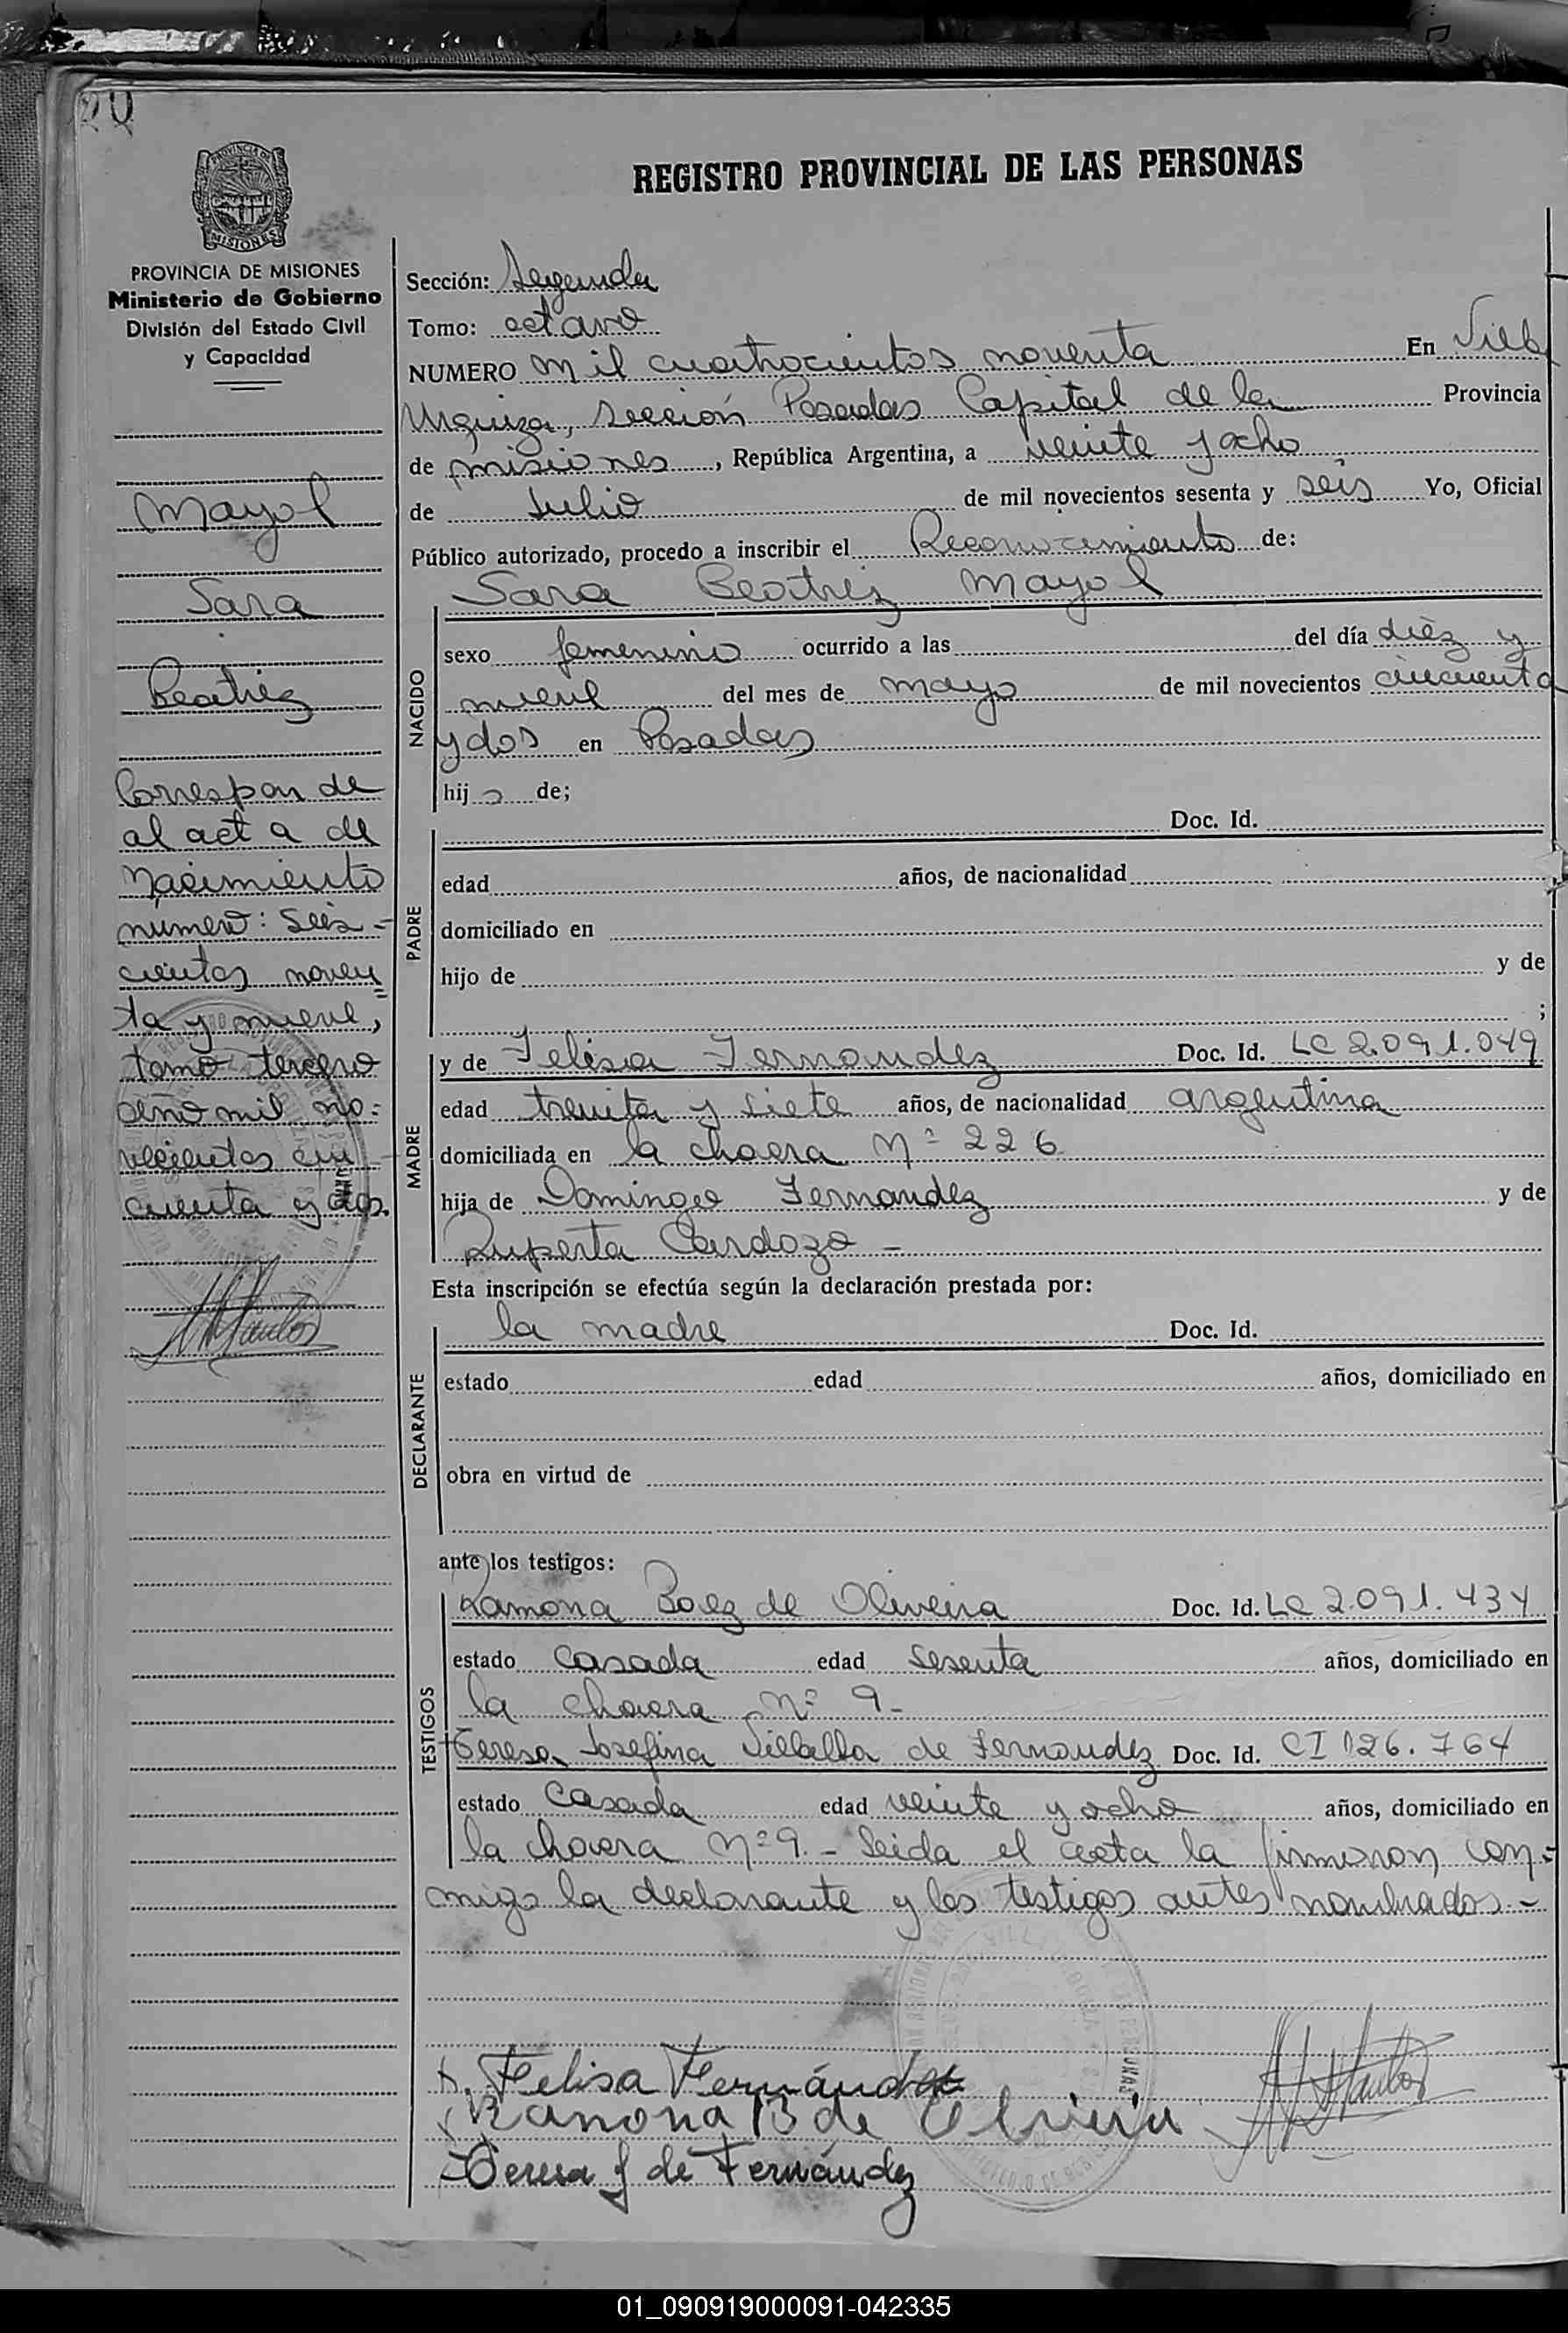 20
REGISTRO PROVINCIAL DE LAS PERSONAS
PROVINCIA DE MISIONES
Ministerio de Gobierno
División del Estado Civil
y Capacidad
Mayol
Sara
Beatriz
Correspon de
al acta de
Nacimiento
número: Seis-
cientos noven
ta y nueve,
tomo tercero
año mil no-
vecientos cin
cuenta y dos.
Sección: Segunda
Tomo: octavo
NUMERO mil cuatrocientos noventa En Villa
Urquiza, Sección Posadas Capital de la Provincia
de misiones, República Argentina, a veinte y ocho
de Julio de mil novecientos sesenta y seis Yo, Oficial
Público autorizado, procedo a inscribir el Reconocimiento de:
Sara Beatriz Mayol
NACIDO
sexo femenino ocurrido a las del día diez y
nueve del mes de mayo de mil novecientos cincuenta
y dos en Posadas
hij a de;
PADRE
Doc. Id.
edad años, de nacionalidad
domiciliado en
hijo de y de
;
MADRE
y de Felisa Fernandez Doc. Id. LC 2.091.049
edad treinta y siete años, de nacionalidad argentina
domiciliada en la chacra Nº 226
hija de Domingo Fernandez y de
Ruperta Cardozo -
Esta inscripción se efectúa según la declaración prestada por:
DECLARANTE
la madre Doc. Id.
estado edad años, domiciliado en
obra en virtud de
ante los testigos:
TESTIGOS
Ramona Baez de Oliveira Doc. Id. LC 2.091.434
estado Casada edad sesenta años, domiciliado en
la chacra Nº 9.-
Teresa Josefina Villalba de Fernandez Doc. Id. CI 126.764
estado Casada edad veinte y ocho años, domiciliado en
la chacra Nº 9.- Leida el acta la firmaron con-
migo la declarante y los testigos antes nombrados.-
Felisa Fernández
Ramona B de Oliveira
Teresa J de Fernández
01_090919000091-042335